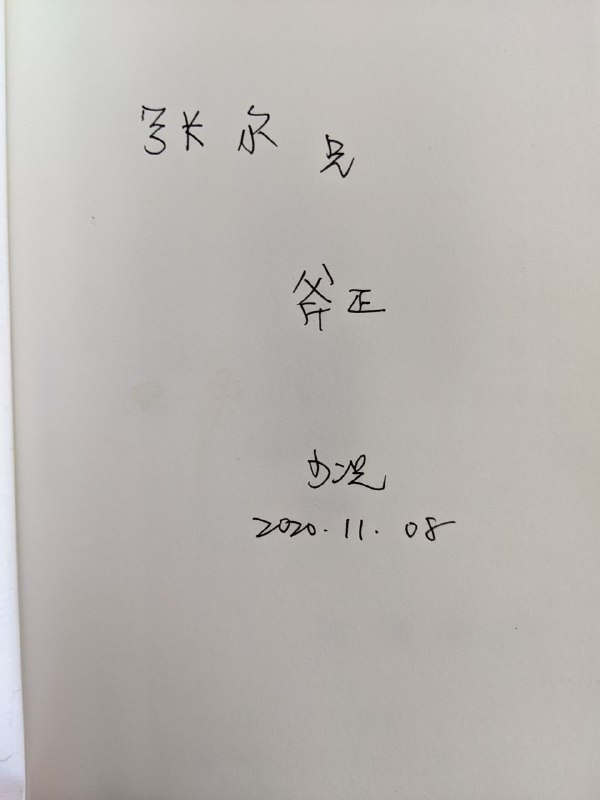 张尔 兄
斧正
少况
2020.11.08